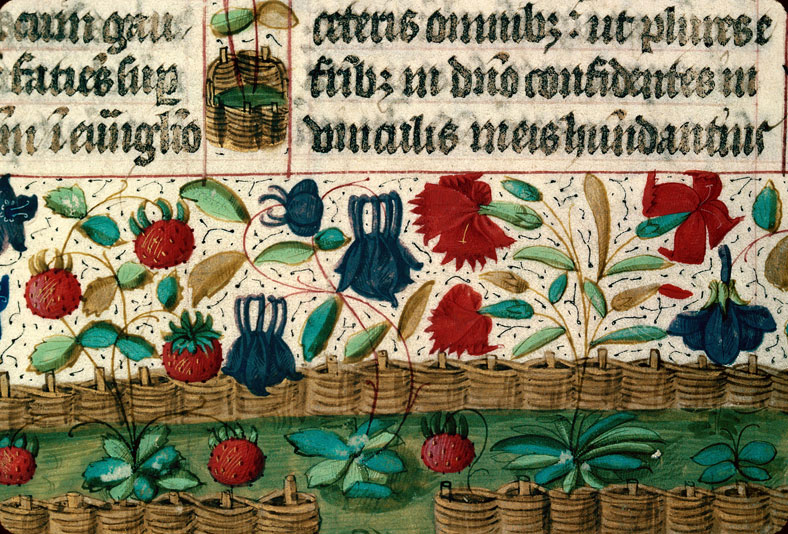 cum gau
faciēs sup
in euāglio
ceteris omnibꝫ : ut plures e
fribꝫ in dño confidentes in
vinculis meis hundantius